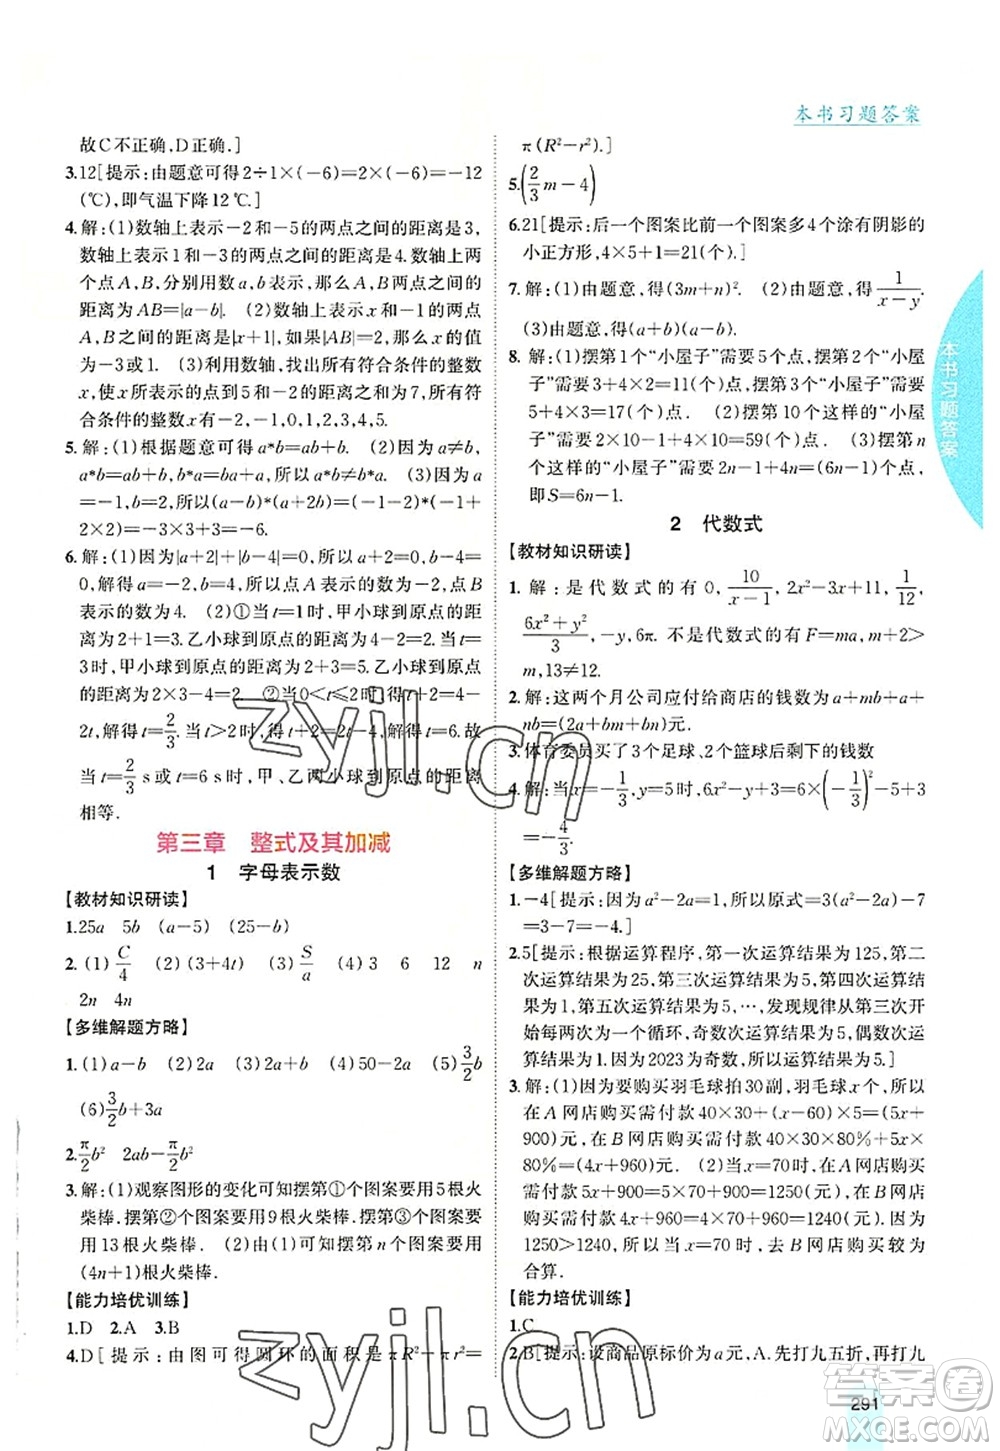 本书习题答案
故C不正确,D正确.]
3.12[提示:由题意可得2÷1×(-6)=2×(-6)=-12
(℃),即气温下降12℃.]
4.解:(1)数轴上表示-2和-5的两点之间的距离是3,
数轴上表示1和-3的两点之间的距离是4. (2)如果两
个点A,B,分别表示数a,b,那么A,B两点之间的
距离为AB=|a-b|. (2)如果数轴上表示x和-1的两点
A,B之间的距离是|x+1|,如果|AB|=2,那么x的值
为-3或1. (3)利用数轴,找出所有符合条件的整数
x,使x所表示的点到5和-2的距离之和为7,这些符
合条件的整数x有-2,-1,0,1,2,3,4,5.
5.解:(1)根据题意可得a*b=ab+b. (2)因为a≠b,
a*b=ab+b,b*a=ab+a,所以a*b≠b*a. (3)因为
a*b=ab+b,所以(-2)*(-3)=(-2)×(-3)+
(-3)=3.所以[(-2)*(-3)]*(-2)=3*(-2)=
3×(-2)+(-2)=-6.
6.解:(1)因为|a+2|+|b-4|=0,所以a+2=0,b-4=
0,解得a=-2,b=4.所以点A表示的数为-2,点B
表示的数为4. (2)①当t=1时,甲小球到原点的距
离=2+1=3.乙小球到原点的距离=4-2=2.当t=
3时,甲小球到原点的距离=2+3=5.乙小球到原点的
距离为2×3-4=2. ②当0<t≤2时,得t+2=4-
2t.解得t=2/3.当t>2时,得t+2=2t-4,解得t=6.故
当t=2/3 s或t=6 s时,甲、乙两小球到原点的距离
相等.
第三章 整式及其加减
1 字母表示数
【教材知识研读】
1.25a 5b (a-5) (25-b)
2.(1)C/4 (2)(3+4t) (3)S/a (4)3 6 12 n
2n 4n
【多维解题方略】
1.(1)a-b (2)2a (3)2a+b (4)50-2a (5)3/2b
(6)3/2b+3a
2.π/2b² 2ab-π/2b²
3.解:(1)观察图形的变化可知摆第①个图案要用5根火
柴棒. 摆第②个图案要用9根火柴棒. 摆第③个图案要
用13根火柴棒. (2)由(1)可知摆第n个图案要用
(4n+1)根火柴棒.
【能力培优训练】
1.D 2.A 3.B
4.D[提示:由图可得圆环的面积是πR²-πr²=
π(R²-r²).]
5.(2/3m-4)
6.21[提示:后一个图案比前一个图案多4个涂有阴影的
小正方形,4×5+1=21(个).]
7.解:(1)由题意,得(3m+n)². (2)由题意,得1/(x-y).
(3)由题意,得(a+b)(a-b).
8.解:(1)摆第1个“小屋子”需要5个点,摆第2个“小屋
子”需要4+3+4=11(个)点,摆第3个“小屋子”需要
5+4×3=17(个)点. (2)摆第10个这样的“小屋
子”需要2×10-1+4×10=59(个)点. (3)摆第n
个这样的“小屋子”需要2n-1+4n=(6n-1)个点,
即S=6n-1.
2 代数式
【教材知识研读】
1.解:是代数式的有0,10/(x-1),2x²-3x+1,1/12,
(6x²+y²)/3,-y,6π. 不是代数式的有F=ma,m+2>
m,13≠12.
2.解:这两个月公司应付给商店的钱数为a+mb+a+
nb=(2a+mb+nb)元.
3.体育委员买了3个足球、2个篮球后剩下的钱数
4.解:当x=-1/3,y=2时,6x²-xy=6×(-1/3)²-(-1/3)×2
=4/3.
【多维解题方略】
1.-4[提示:因为a²-2a=1,所以原式=3(a²-2a)-7
=3-7=-4.]
2.5[提示:根据运算程序,第一次运算结果为125,第二
次运算结果为25,第三次运算结果为5,第四次运算结
果为1,第五次运算结果为5,…,发现规律从第三次开
始每两次为一个循环,奇数次运算结果为5,偶数次运
算结果为1.因为2023为奇数,所以运算结果为5.]
3.解:(1)因为要购买羽毛球拍30副,羽毛球x盒(x>60),所以
在A网店购买需付款40×30+(x-60)×5=(5x+
900)元,在B网店购买需付款(40×30+5x)×
80%=(4x+960)元. (2)当x=70时,在A网店购买
需付款5x+900=5×70+900=1250(元),在B网店购买
需付款4x+960=4×70+960=1240(元). 因为
1250>1240,所以当x=70时,去B网店购买较为
合算.
【能力培优训练】
1.C
2.B[提示:设商品原标价为a元,A.先打九五折,再打九
本书习题答案
291
zyjl.cn
zyjl.cn
答案圈